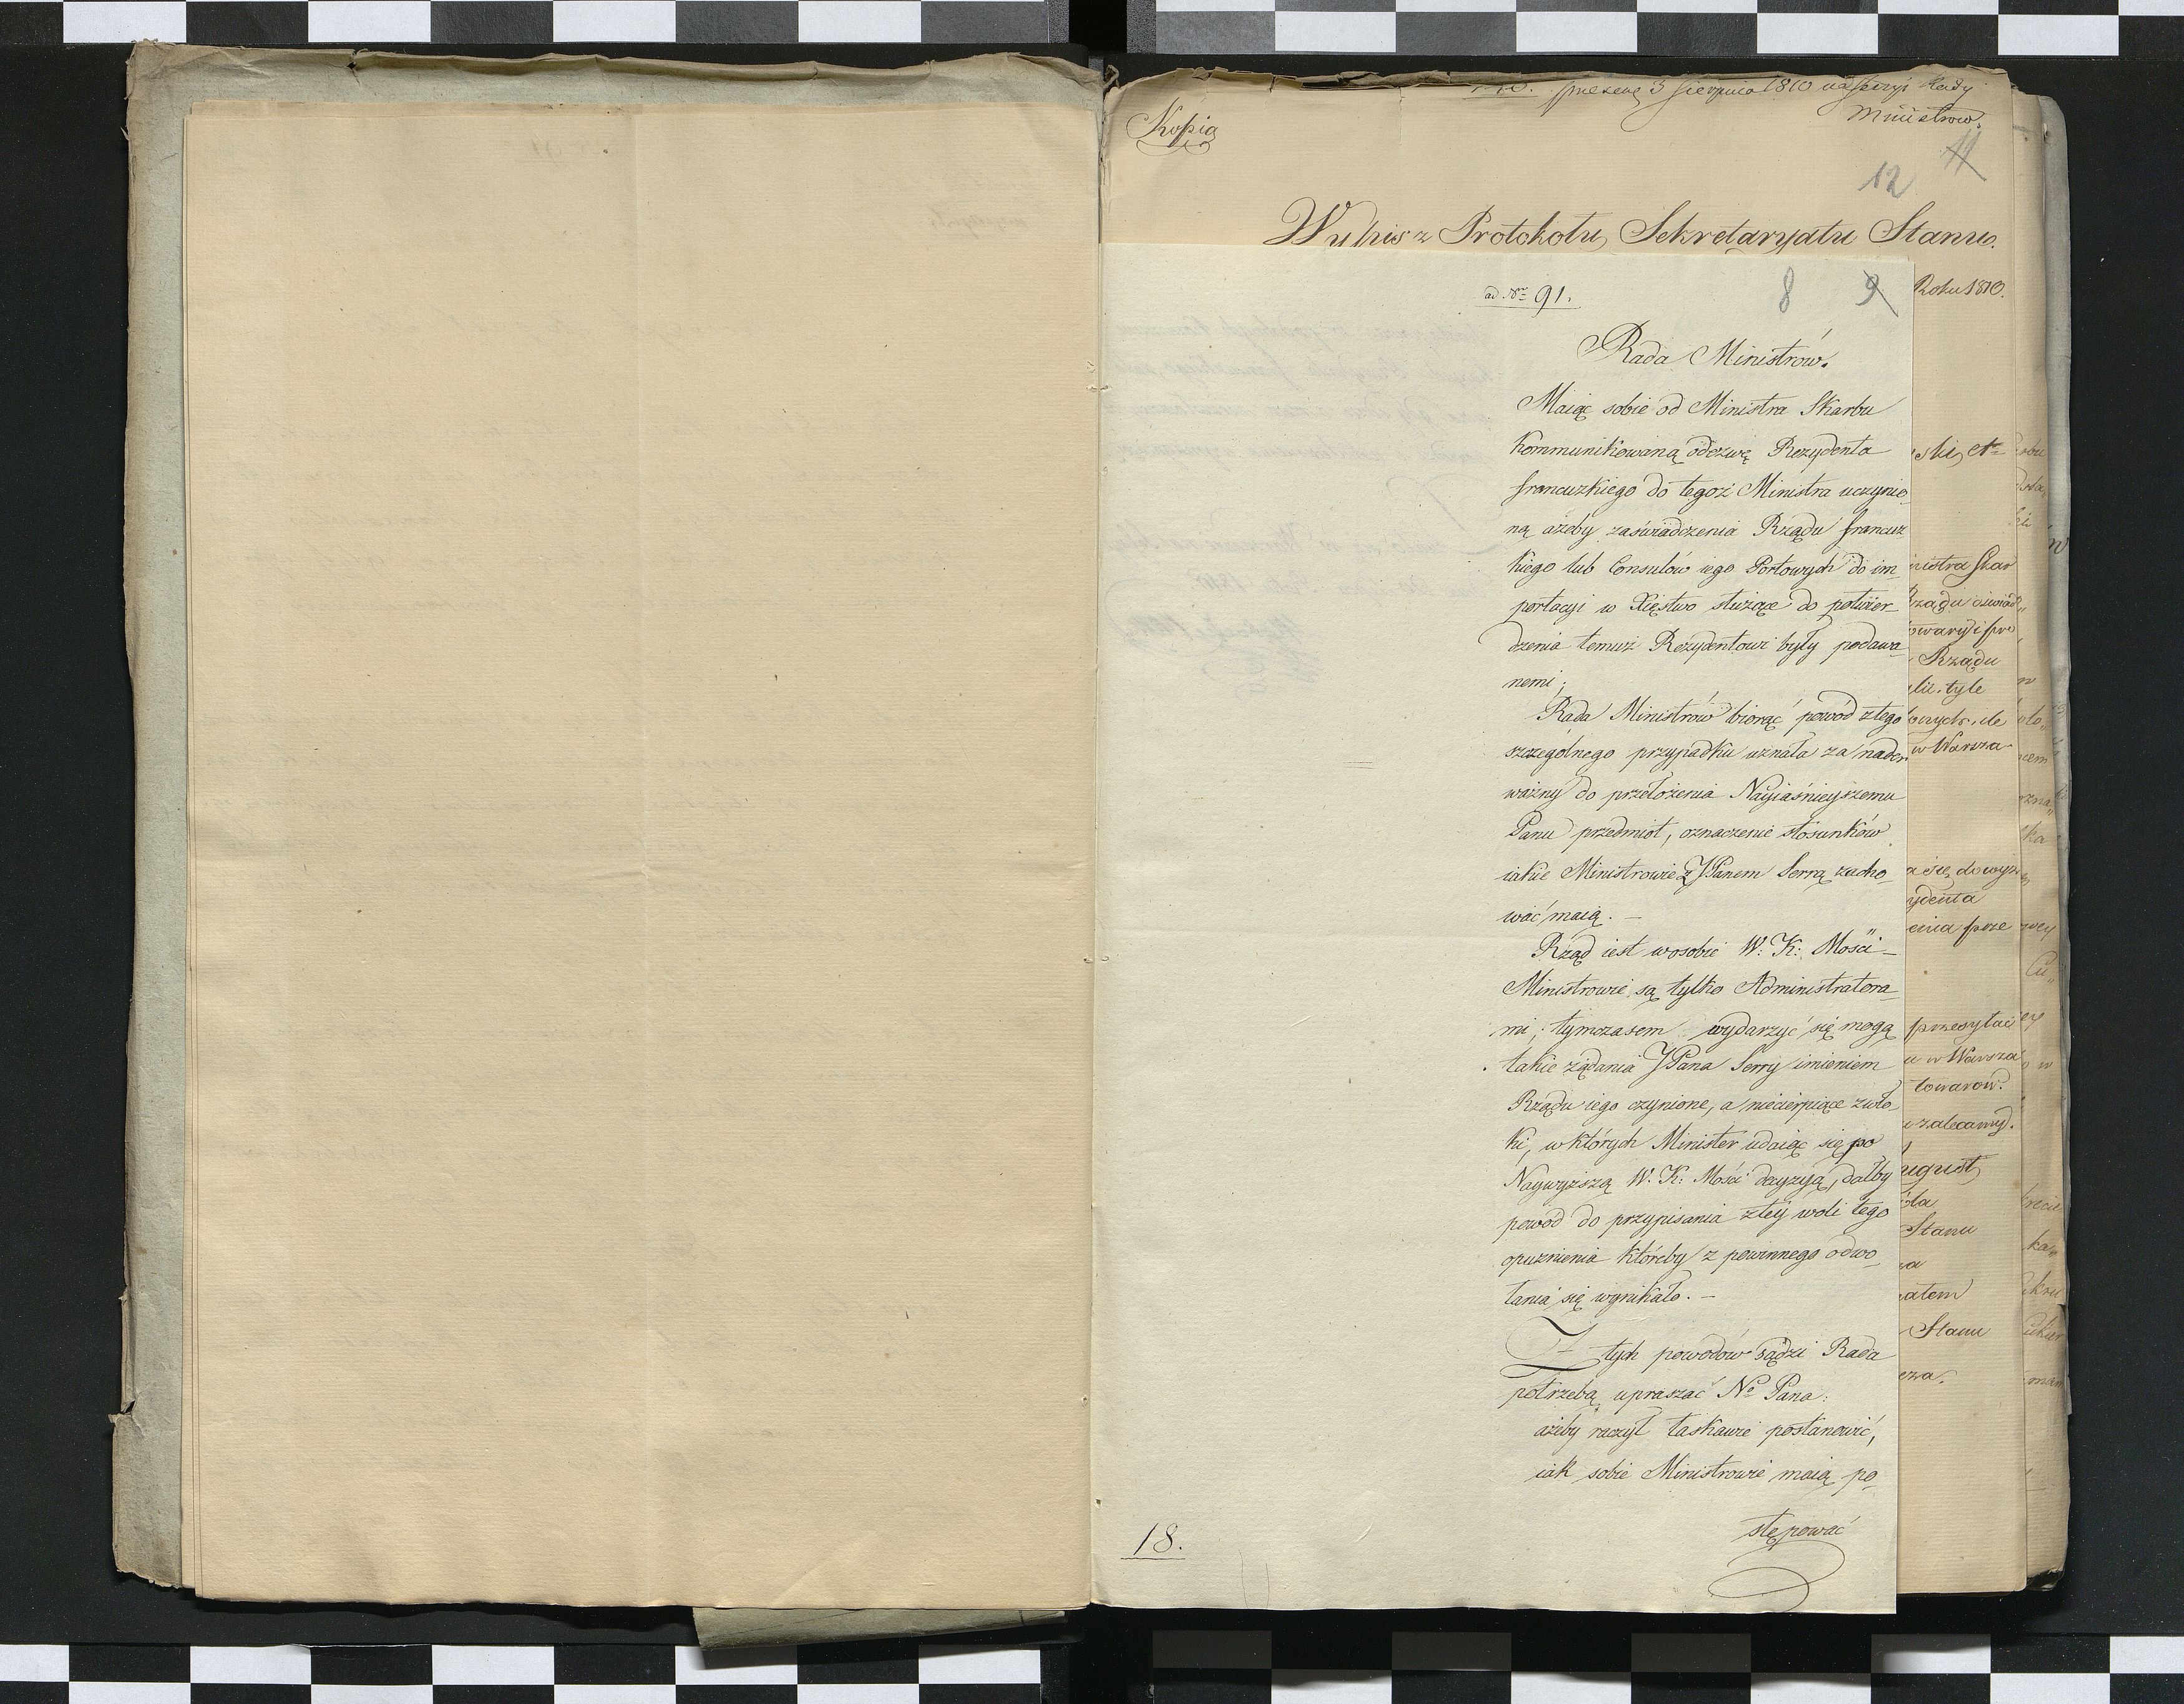 prezent 3 Sierpnia 1810 na sessyi Rady
Ministrow.
Kopia
11
12
Wypis z Protokołu Sekretaryatu Stanu.
Roku 1810.
ad Nr 91.
8 9
Rada Ministrów.
Maiąc sobie od Ministra Skarbu
kommunikowaną odezwę Rezydenta
francuzkiego do tegoż Ministra uczynio
ną ażeby zaświadczenia Rządu francuz
kiego lub Consulów iego Portowych do im-
portacyi w Xięstwo służące do potwier-
dzenia temuż Rezydentowi były podawa
nemi;
Rada Ministrów biorąc powód z tego
szczególnego przypadku uznała za nader
ważny do przełożenia Nayiaśnieyszemu
Panu przedmiot, oznaczenie stosunków
iakie Ministrowie z JPanem Serrą zacho-
wać maią. -
Rząd iest w osobie W: K: Mości -
Ministrowie są tylko Administratora-
mi; tymczasem wydarzyć się mogą
takie żądania JPana Serry imieniem
Rządu iego czynione, a niecierpiące zwło-
ki, w których Minister udaiąc się po
Naywyższą W: K: Mości decyzyą, dałby
powód do przypisania złey woli tego
opuznienia któreby z powinnego odwo-
łania się wynikało. -
Z tych powodów sądzi Rada
potrzebą upraszać No Pana:
ażeby raczył łaskawie postanowić,
iak sobie Ministrowie maią po-
stępować
18.
ski, etc
nistra Skar
Rządu oświad
owary i pro
Rządu
tyle
ile
w Warsza
a się do wyż
ydenta
enia prze
przesyłać
u w Warsza
towarow.
zalecamy.
ugust
Stanu
atem
Stanu